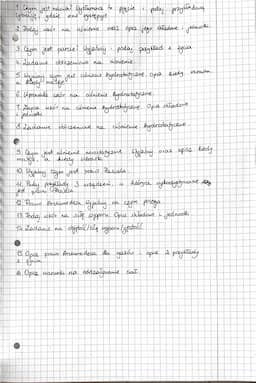 1. Czym jest
sytuację, gdzie występuje
2. Podaj wzór na ciśnienie oraz opis jego składowe, jednostki
3. Czym jest parcie? Wyjaśnij, podaj przykład z życia
4. Zadanie obliczeniowe na ciśnienie
5. Wyjaśnij czym jest ciśnienie hydrostatyczne. Opis kiedy
a kiedy maleje
6. wzór na ciśnienie hydrostatyczne
7. Zapisz wzór na ciśnienie hydrostatyczne. Opis składowe
i jednostki
8. Zadanie obliczeniowe na ciśnienie hydrostatyczne
9. Czym jest ciśnienie Wyjaśnij oraz opisz kiedy
maleje, a kiedy wzrasta
10. Wyjaśnij czym jest prawo Pascala
11. Podaj przykłady 3 urządzeń, w których wykorzystywane
jest prawo Pascala
12. Prawo Archimedesa. Wyjaśnij na czym polega
13. Podaj wzór na siłę wyporu. Opis składowe i jednostki
14. Zadanie na objętość/siłę wyporu/gęstość
15. Opis prawo Archimedesa dla gazów i opis 2 przykłady
z życia
16. Opis warunki na